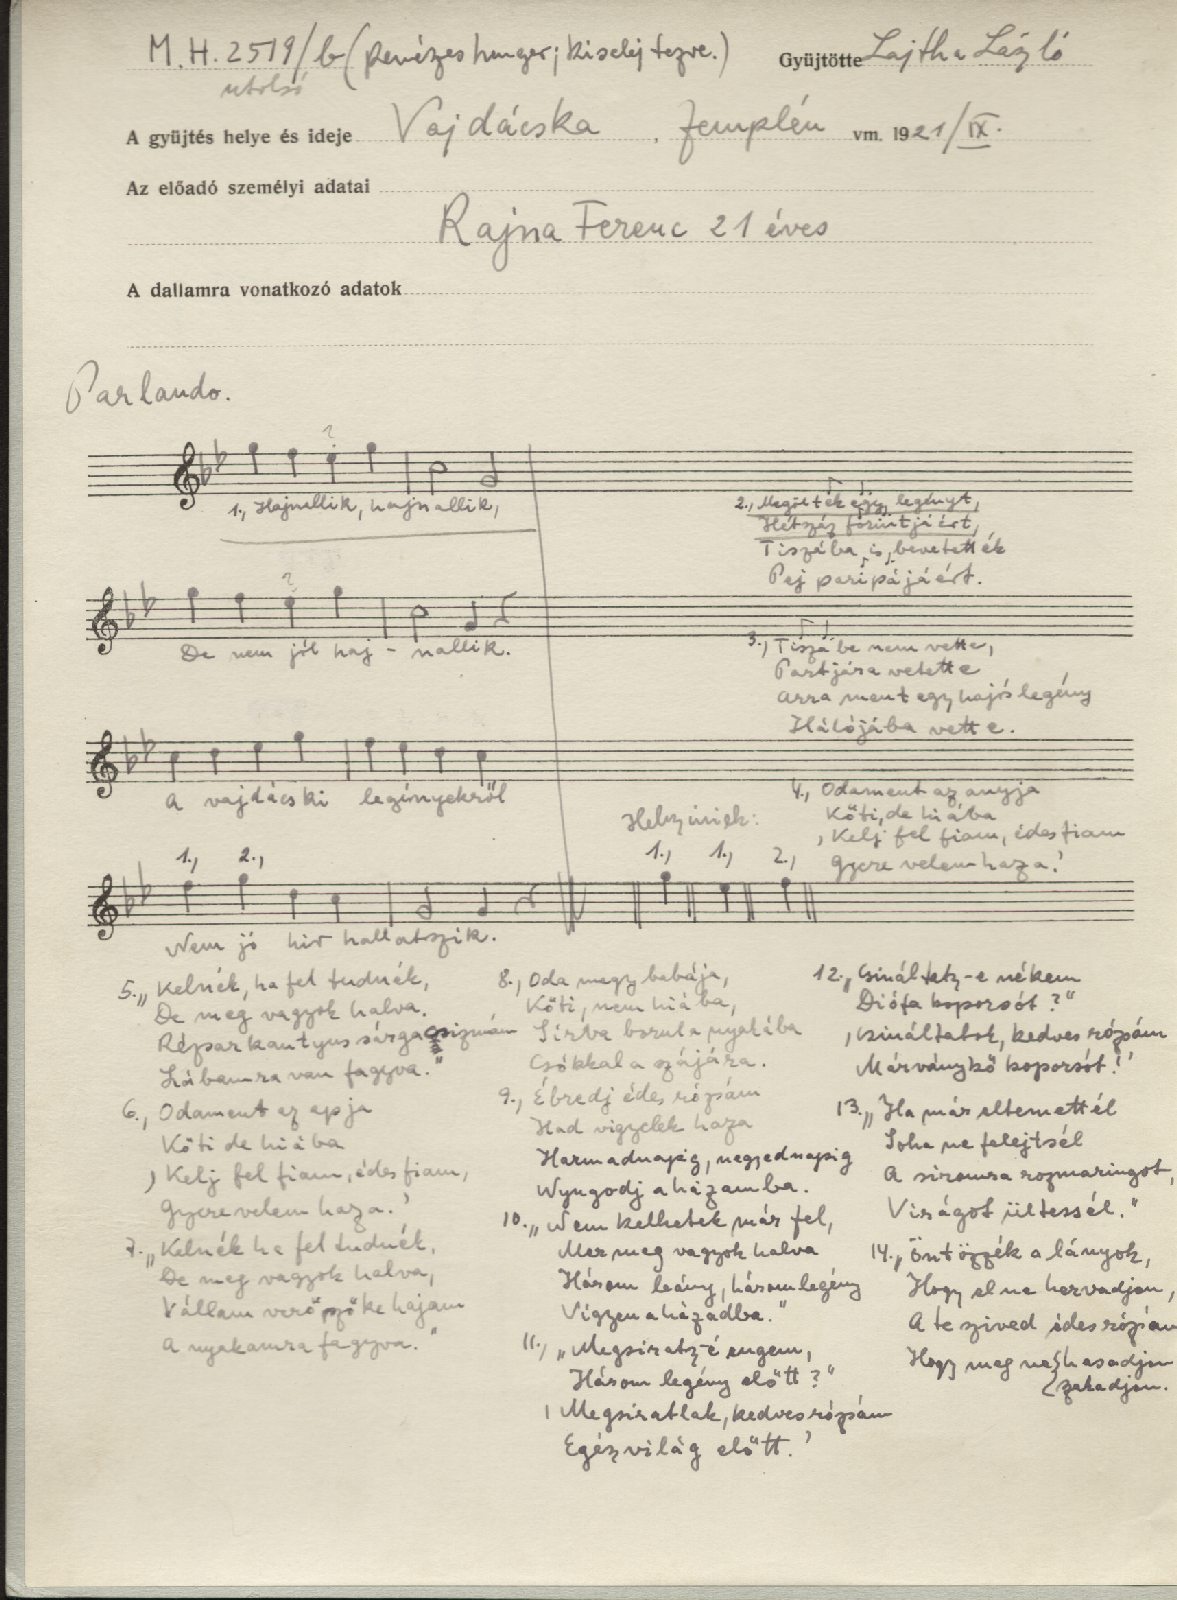 M.H. 2519/b (penészes henger; kiselejtezve.)
utolsó
Gyüjtötte Lajtha László
A gyüjtés helye és ideje Vajdácska, Zemplén vm. 1921/IX.
Az előadó személyi adatai
Rajna Ferenc 21 éves
A dallamra vonatkozó adatok
Parlando.
?
1., Hajnallik, hajnallik,
?
De nem jól haj - nallik.
A vajdácski legényekről
1., 2.,
Nem jó hír hallatszik.
Helyiniek:
1., 1., 2.,
2., Megölték egy legényt,
Hétszáz forintjáért,
Tiszába is bevetették
Pej paripájáért.
3., Tiszábe nem vette,
Partjára vetette
Arra ment egy hajós legény
Hálójába vette.
4., Odament az anyja
Kőti, de hiába
, Kelj fel fiam, édes fiam
Gyere velem haza!'
5. „Kelnék, ha fel tudnék,
De meg vagyok halva.
Répsarkantyus sárga csizmám
Lábamra van fagyva."
6., Odament az apja
Kőti de hiába
, Kelj fel fiam, édes fiam,
Gyere velem haza.'
7. „Kelnék ha fel tudnék,
De meg vagyok halva,
Vállam verő szőke hajam
A nyakamra fagyva."
8., Oda megy babája,
Kőti, nem hiába,
Sírva borula nyakába
Csókkal a szájára.
9., Ébredj édes rózsám
Had vigyelek haza
Harmadnapig, negyednapig
Nyugodj a házamba.
10. „Nem kelhetek már fel,
Mer meg vagyok halva
Három leány, három legény
Vigyen a házadba."
11., „Megsiratz-é engem,
Három legény előtt?"
, Megsiratlak, kedves rózsám
Egéz világ előtt.'
12. „Csináltatz-e nékem
Diófa koporsót?"
, Csináltatok, kedves rózsám
Márványkő koporsót!'
13. „Ha már eltemettél
Soha ne felejtsél
A siromra rozmaringot,
Virágot ültessél."
14., Öntözzék a lányok,
Hogy el ne hervadjon,
A te szived édes rózsám
Hogy meg ne hasadjon
szakadjon.